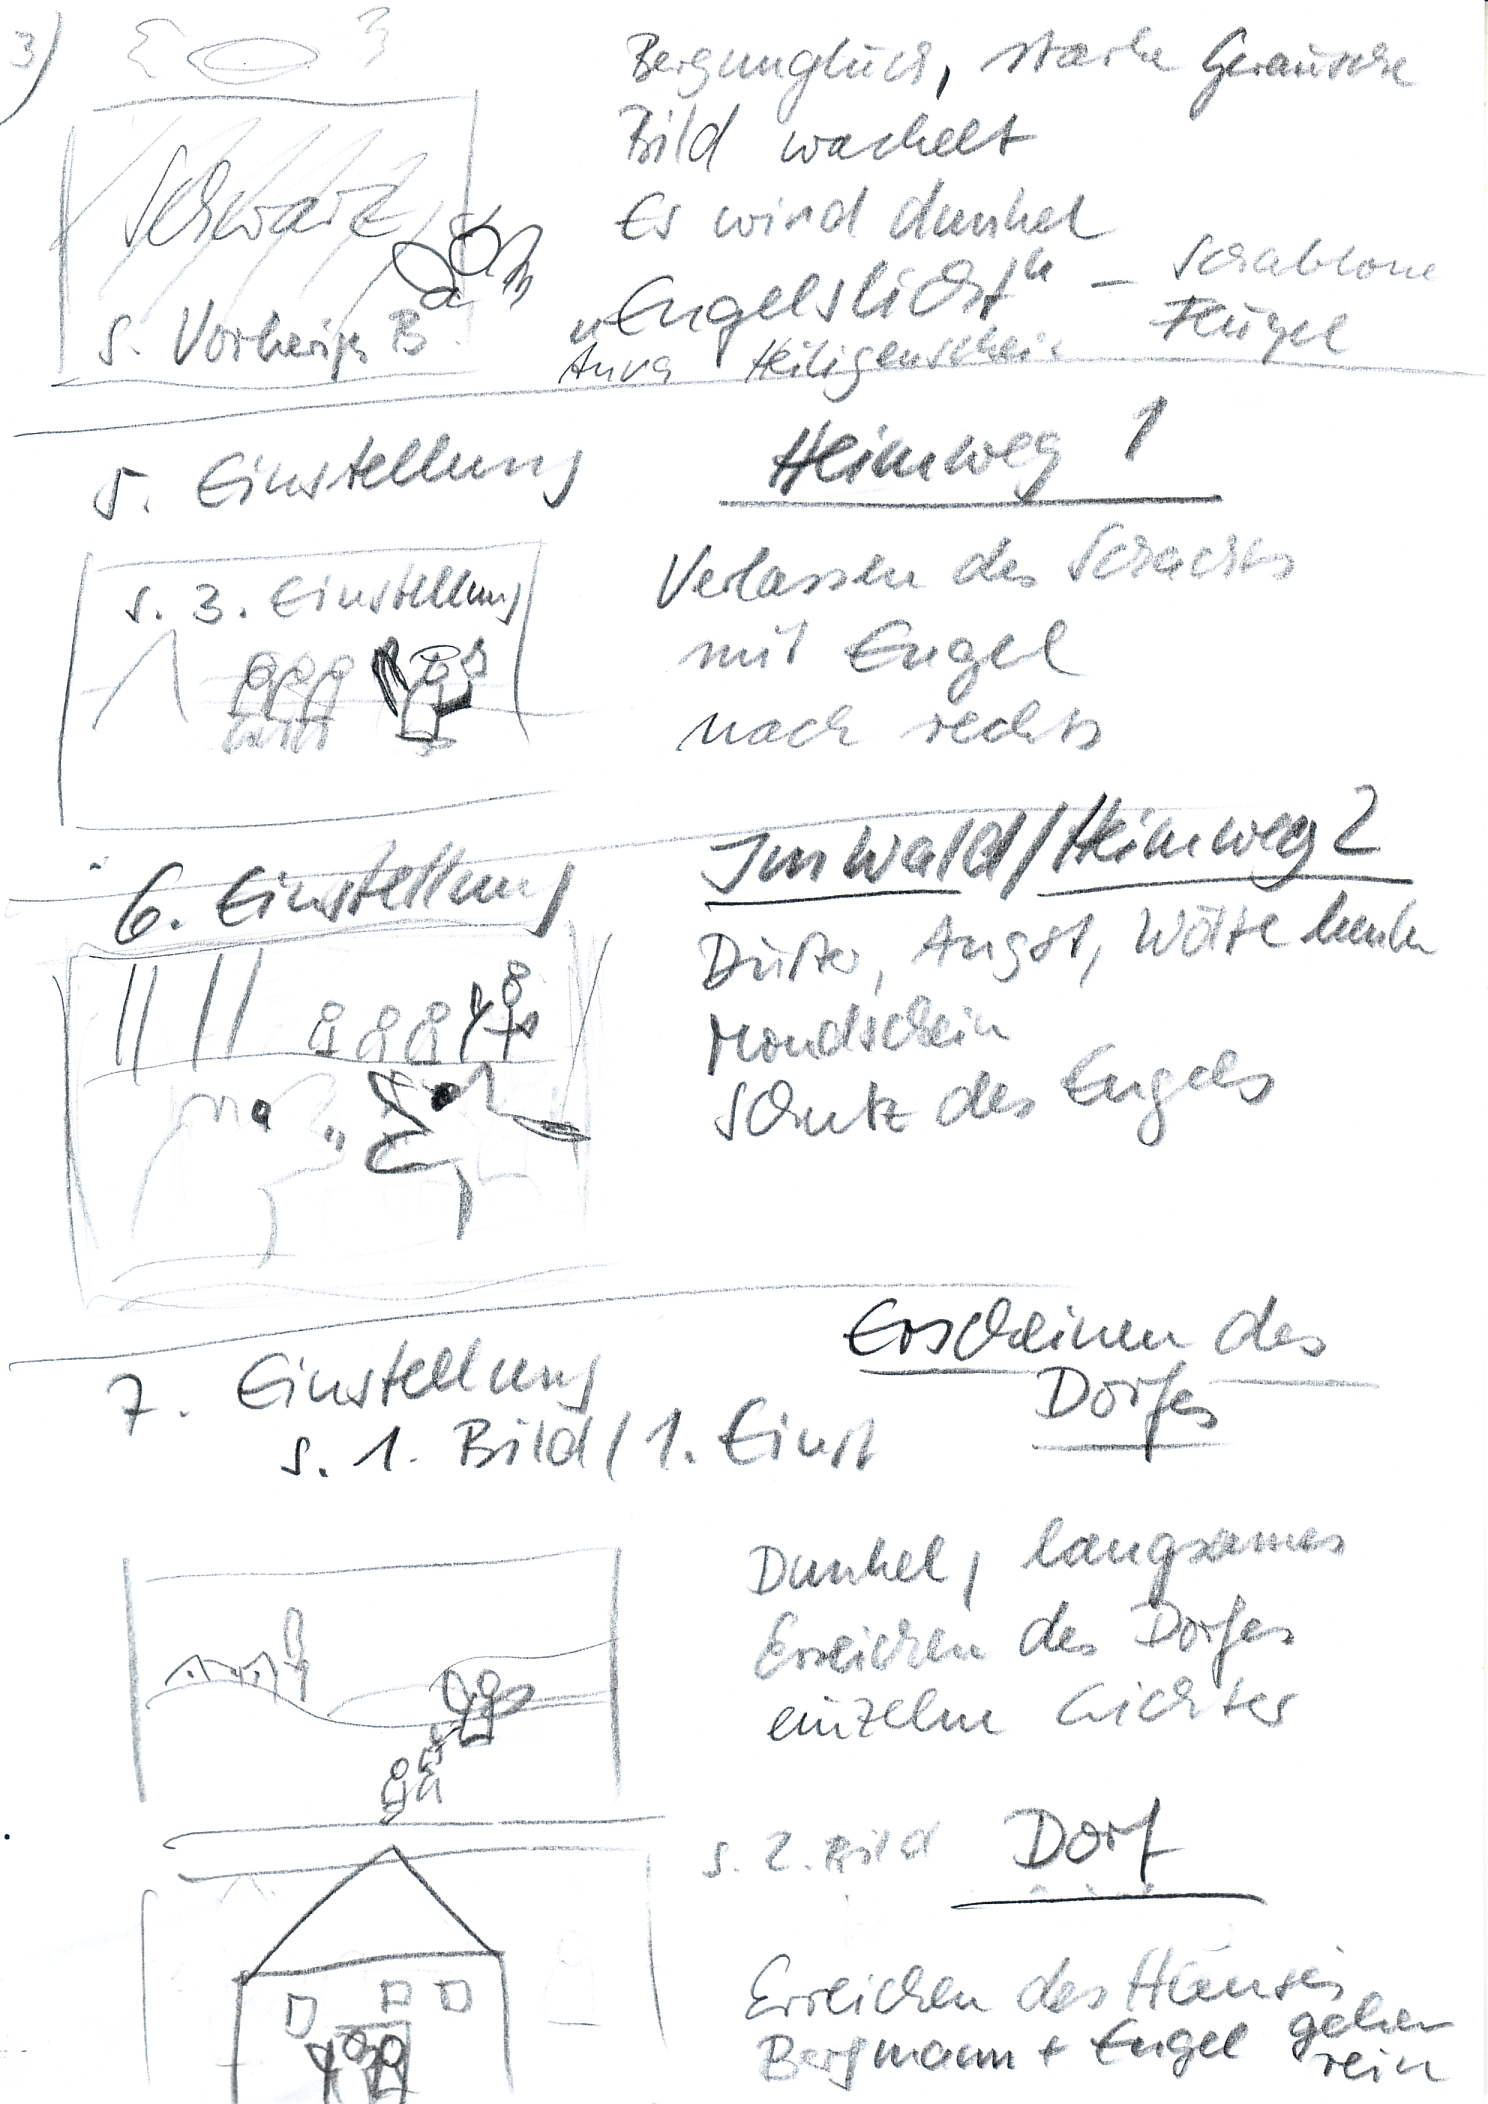 3)
Bergunglück, starke Geräusche
Bild wackelt
Schwarz
Es wird dunkel
"Engelslicht" - Schablone
Flügel
s. Vorheriges B.
Aura Heiligenschein
5. Einstellung Heimweg 1
s. 3. Einstellung
Verlassen des Schachts
mit Engel
nach rechts
6. Einstellung Im Wald/Heimweg 2
Düster, Angst, Wölfe heulen
Mondschein
Schutz des Engels
7. Einstellung Erscheinen des
Dorfes
s. 1. Bild/1. Einst
Dunkel, langsames
Erreichen des Dorfes
einzelne Lichter
s. 2. Bild Dorf
Erreichen des Hauses
Bergmann + Engel gehen
rein